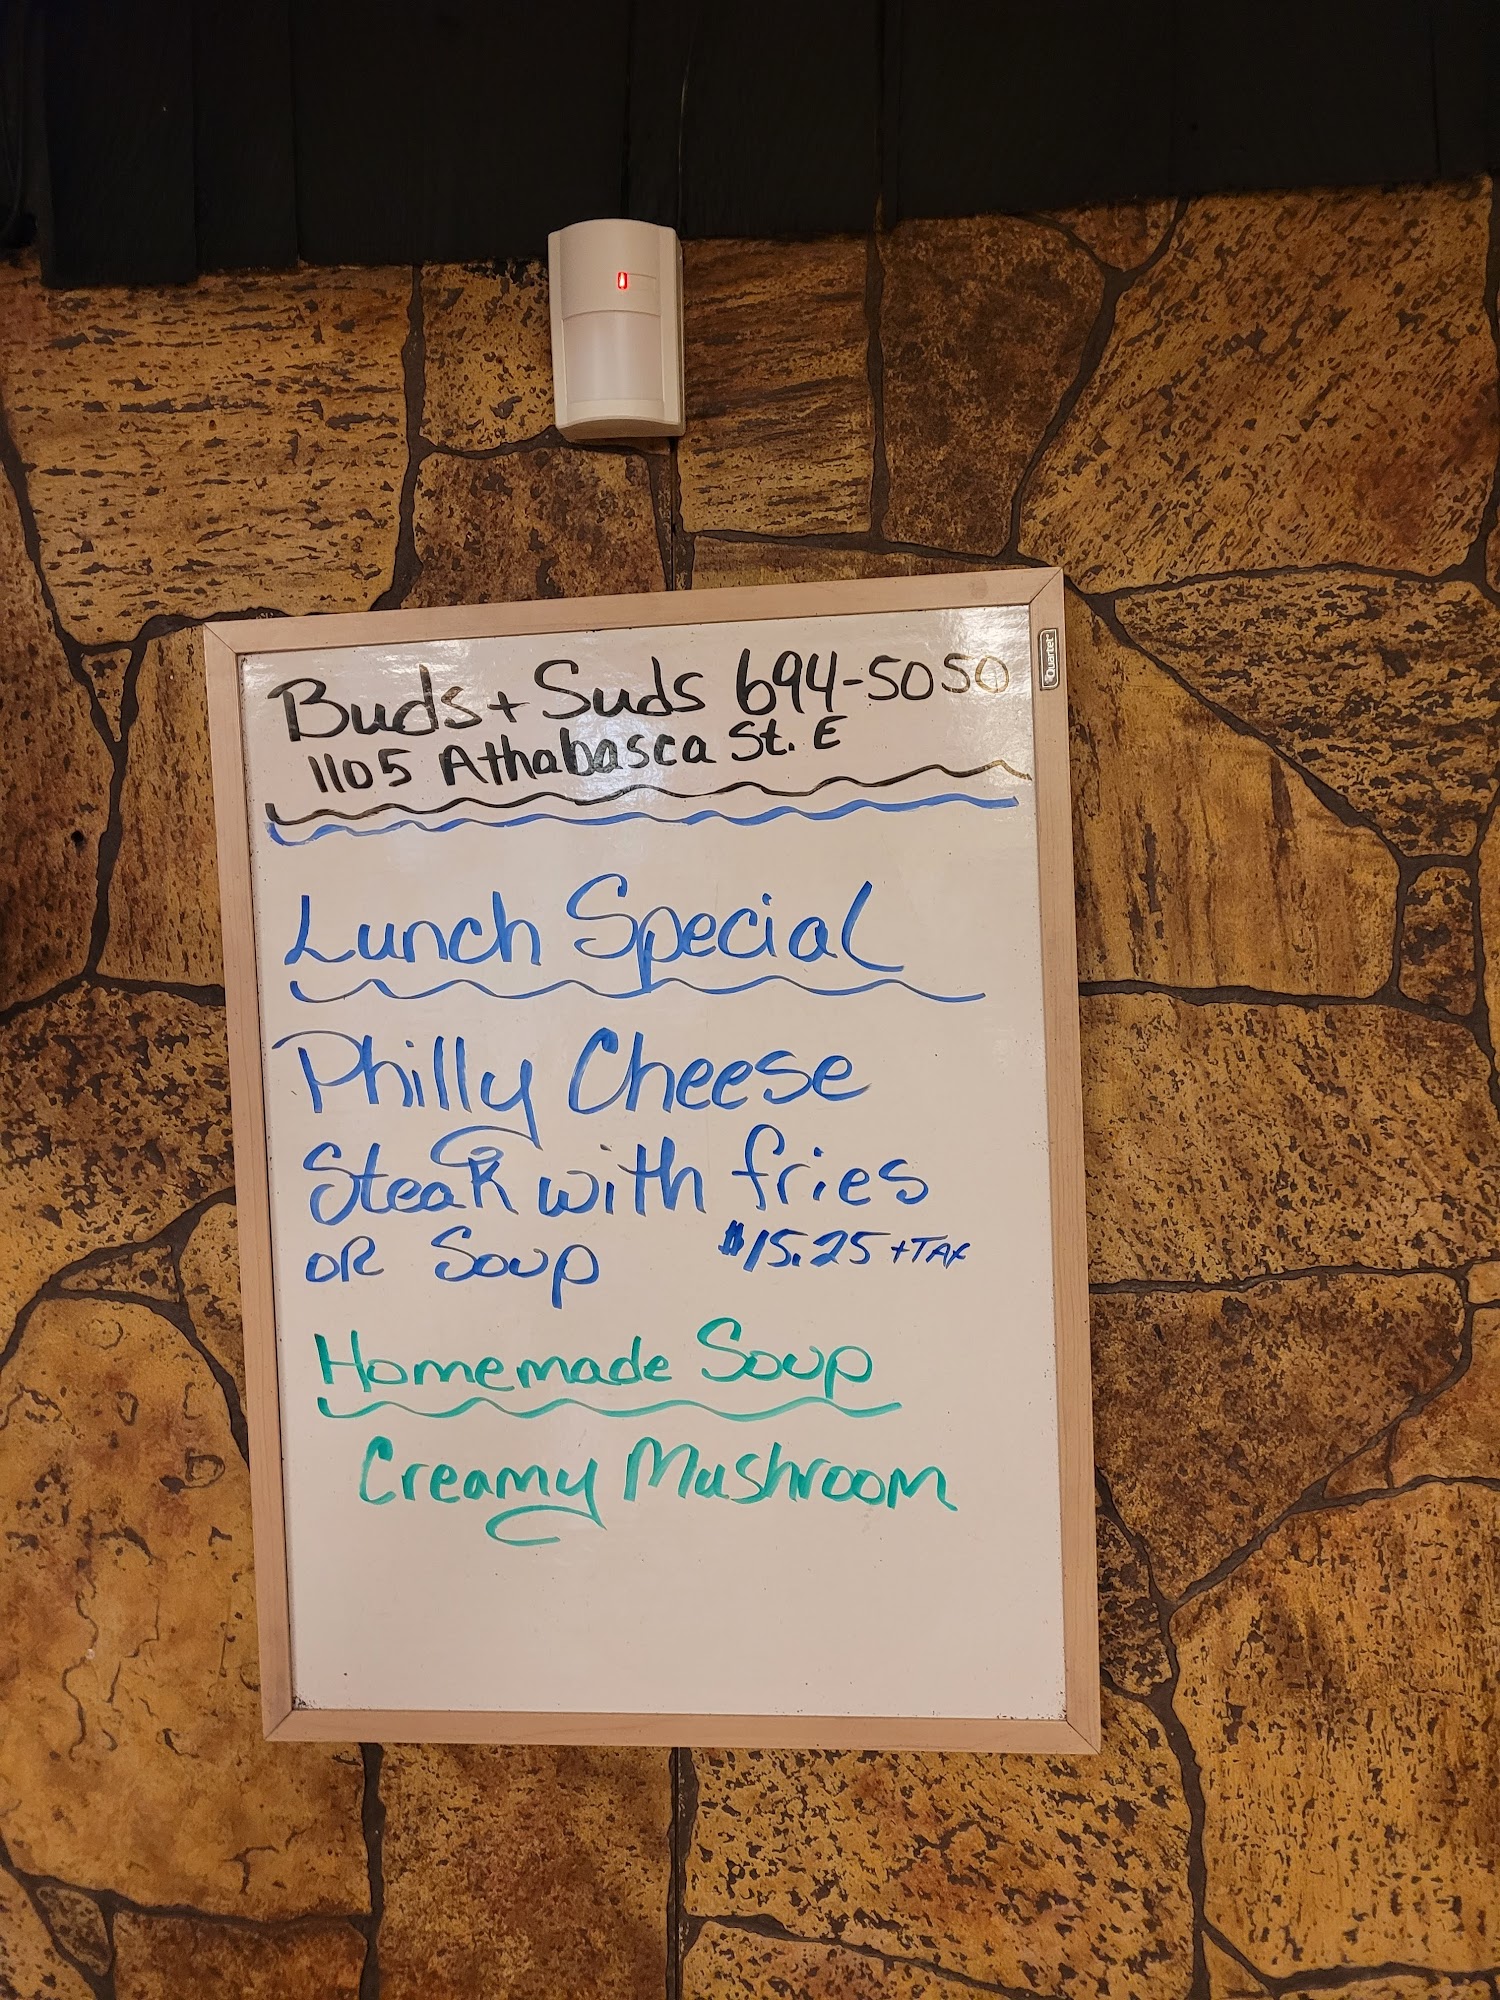 Buds + Suds 694-5050
1105 Athabasca St. E
Quartet
Lunch Special
Philly Cheese
Steak with fries
OR Soup $15.25 + TAX
Homemade Soup
Creamy Mushroom